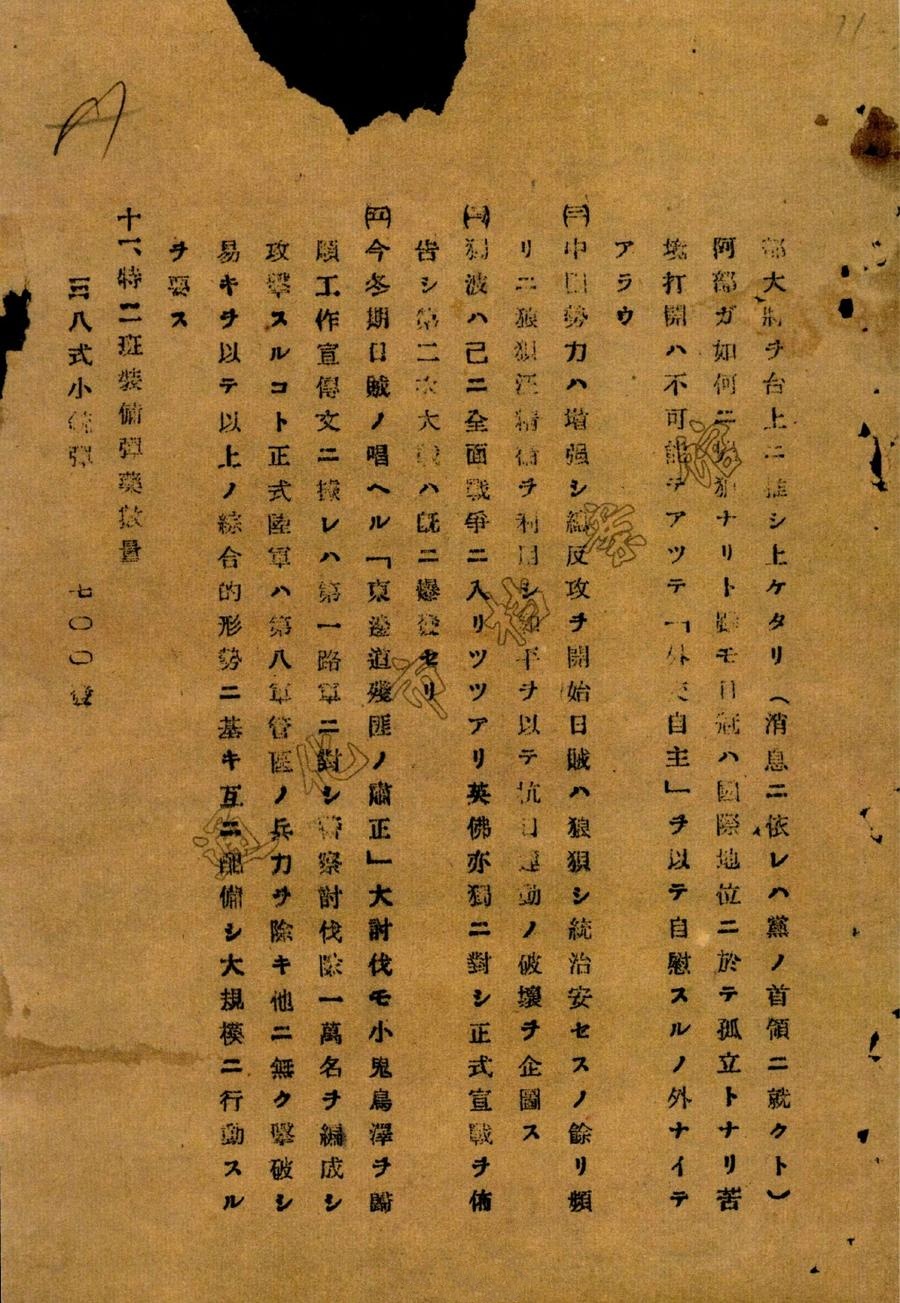 部大將ヲ台上ニ推シ上ケタリ(消息ニ依レハ黨ノ首領ニ就クト)
阿部ガ如何ニ ナリト雖モ日寇ハ國際地位ニ於テ孤立トナリ苦
境打開ハ不可能デアツテ「外交自主」ヲ以テ自慰スルノ外ナイデ
アラウ
㈢中国勢力ハ增强シ總反攻ヲ開始日賊ハ狼狽シ統治安セスノ餘リ頻
リニ狼狽汪精衞ヲ利用シ和平ヲ以テ抗日運動ノ破壞ヲ企圖ス
獨波ハ己ニ全面戰爭ニ入リツツアリ英佛亦獨ニ對シ正式宣戰ヲ佈
告シ第二次大戰ハ既ニ爆發セリ
㈤今冬期日賊ノ唱ヘル「東邊道殘匪ノ肅正」大討伐モ小鬼鳥澤ヲ歸
順工作宣傳文ニ據レハ第一路軍ニ對シ警察討伐隊一萬名ヲ編成シ
攻擊スルコト正式陸軍ハ第八軍管區ノ兵力ヲ除キ他ニ無ク擊破シ
易キヲ以テ以上ノ綜合的形勢ニ基キ互ニ配備シ大規模ニ行動スル
ヲ要ス
十一、特二班裝備彈藥數量
三八式小銃彈 七〇〇發
通化市档案